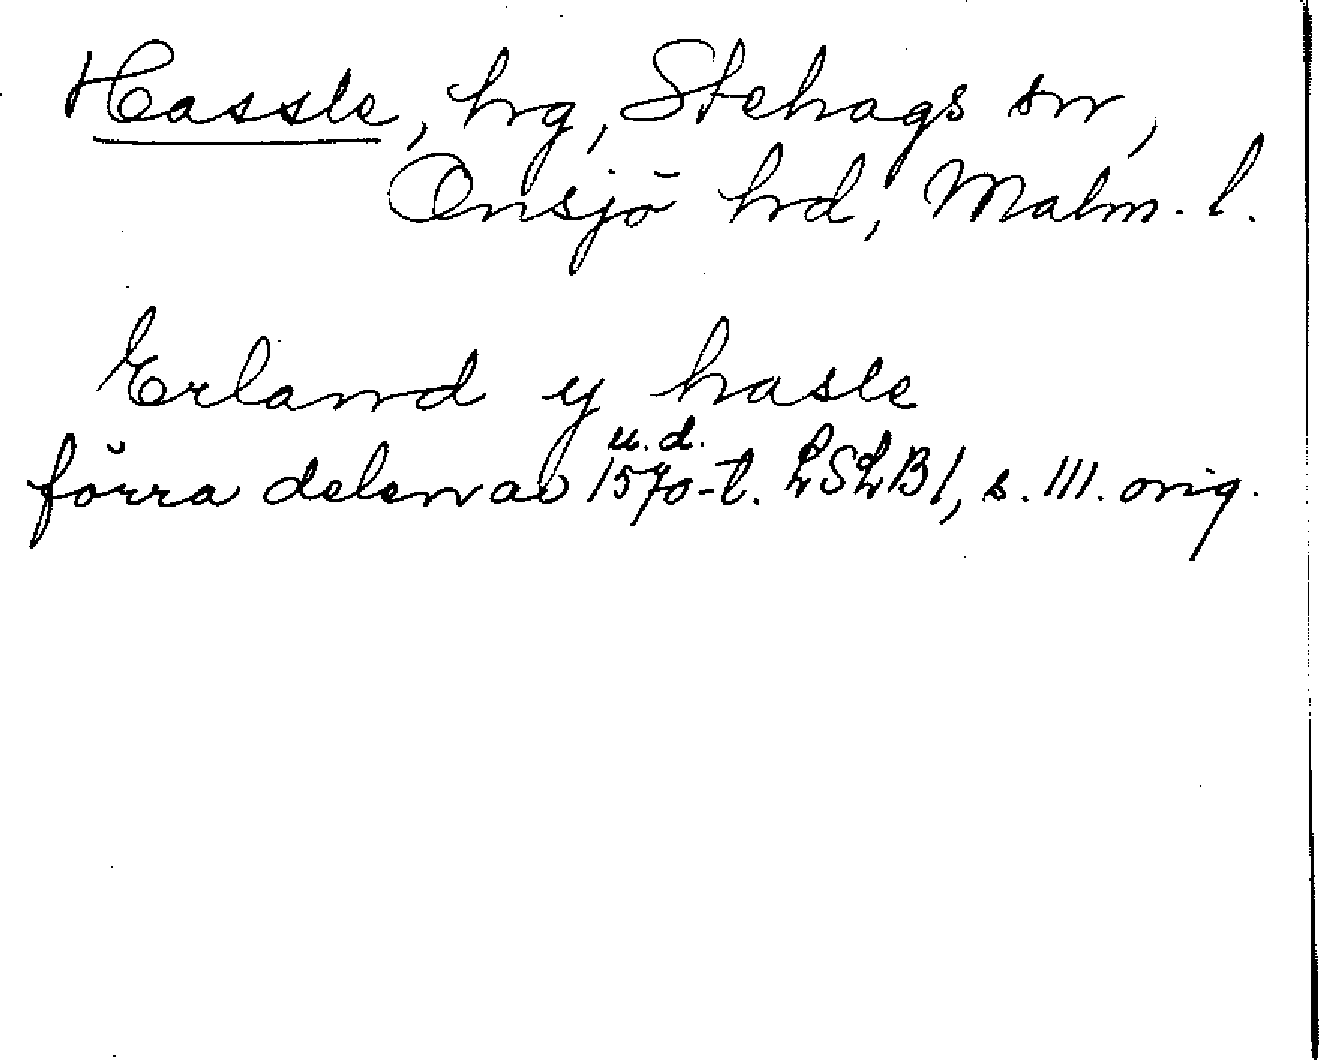 Hassle, hg, Stehags sn,
Onsjö hd, Malm. l.
Erland y hasle
u.d.
förra delen av 1570-t. LSLB1, s. 111. orig.